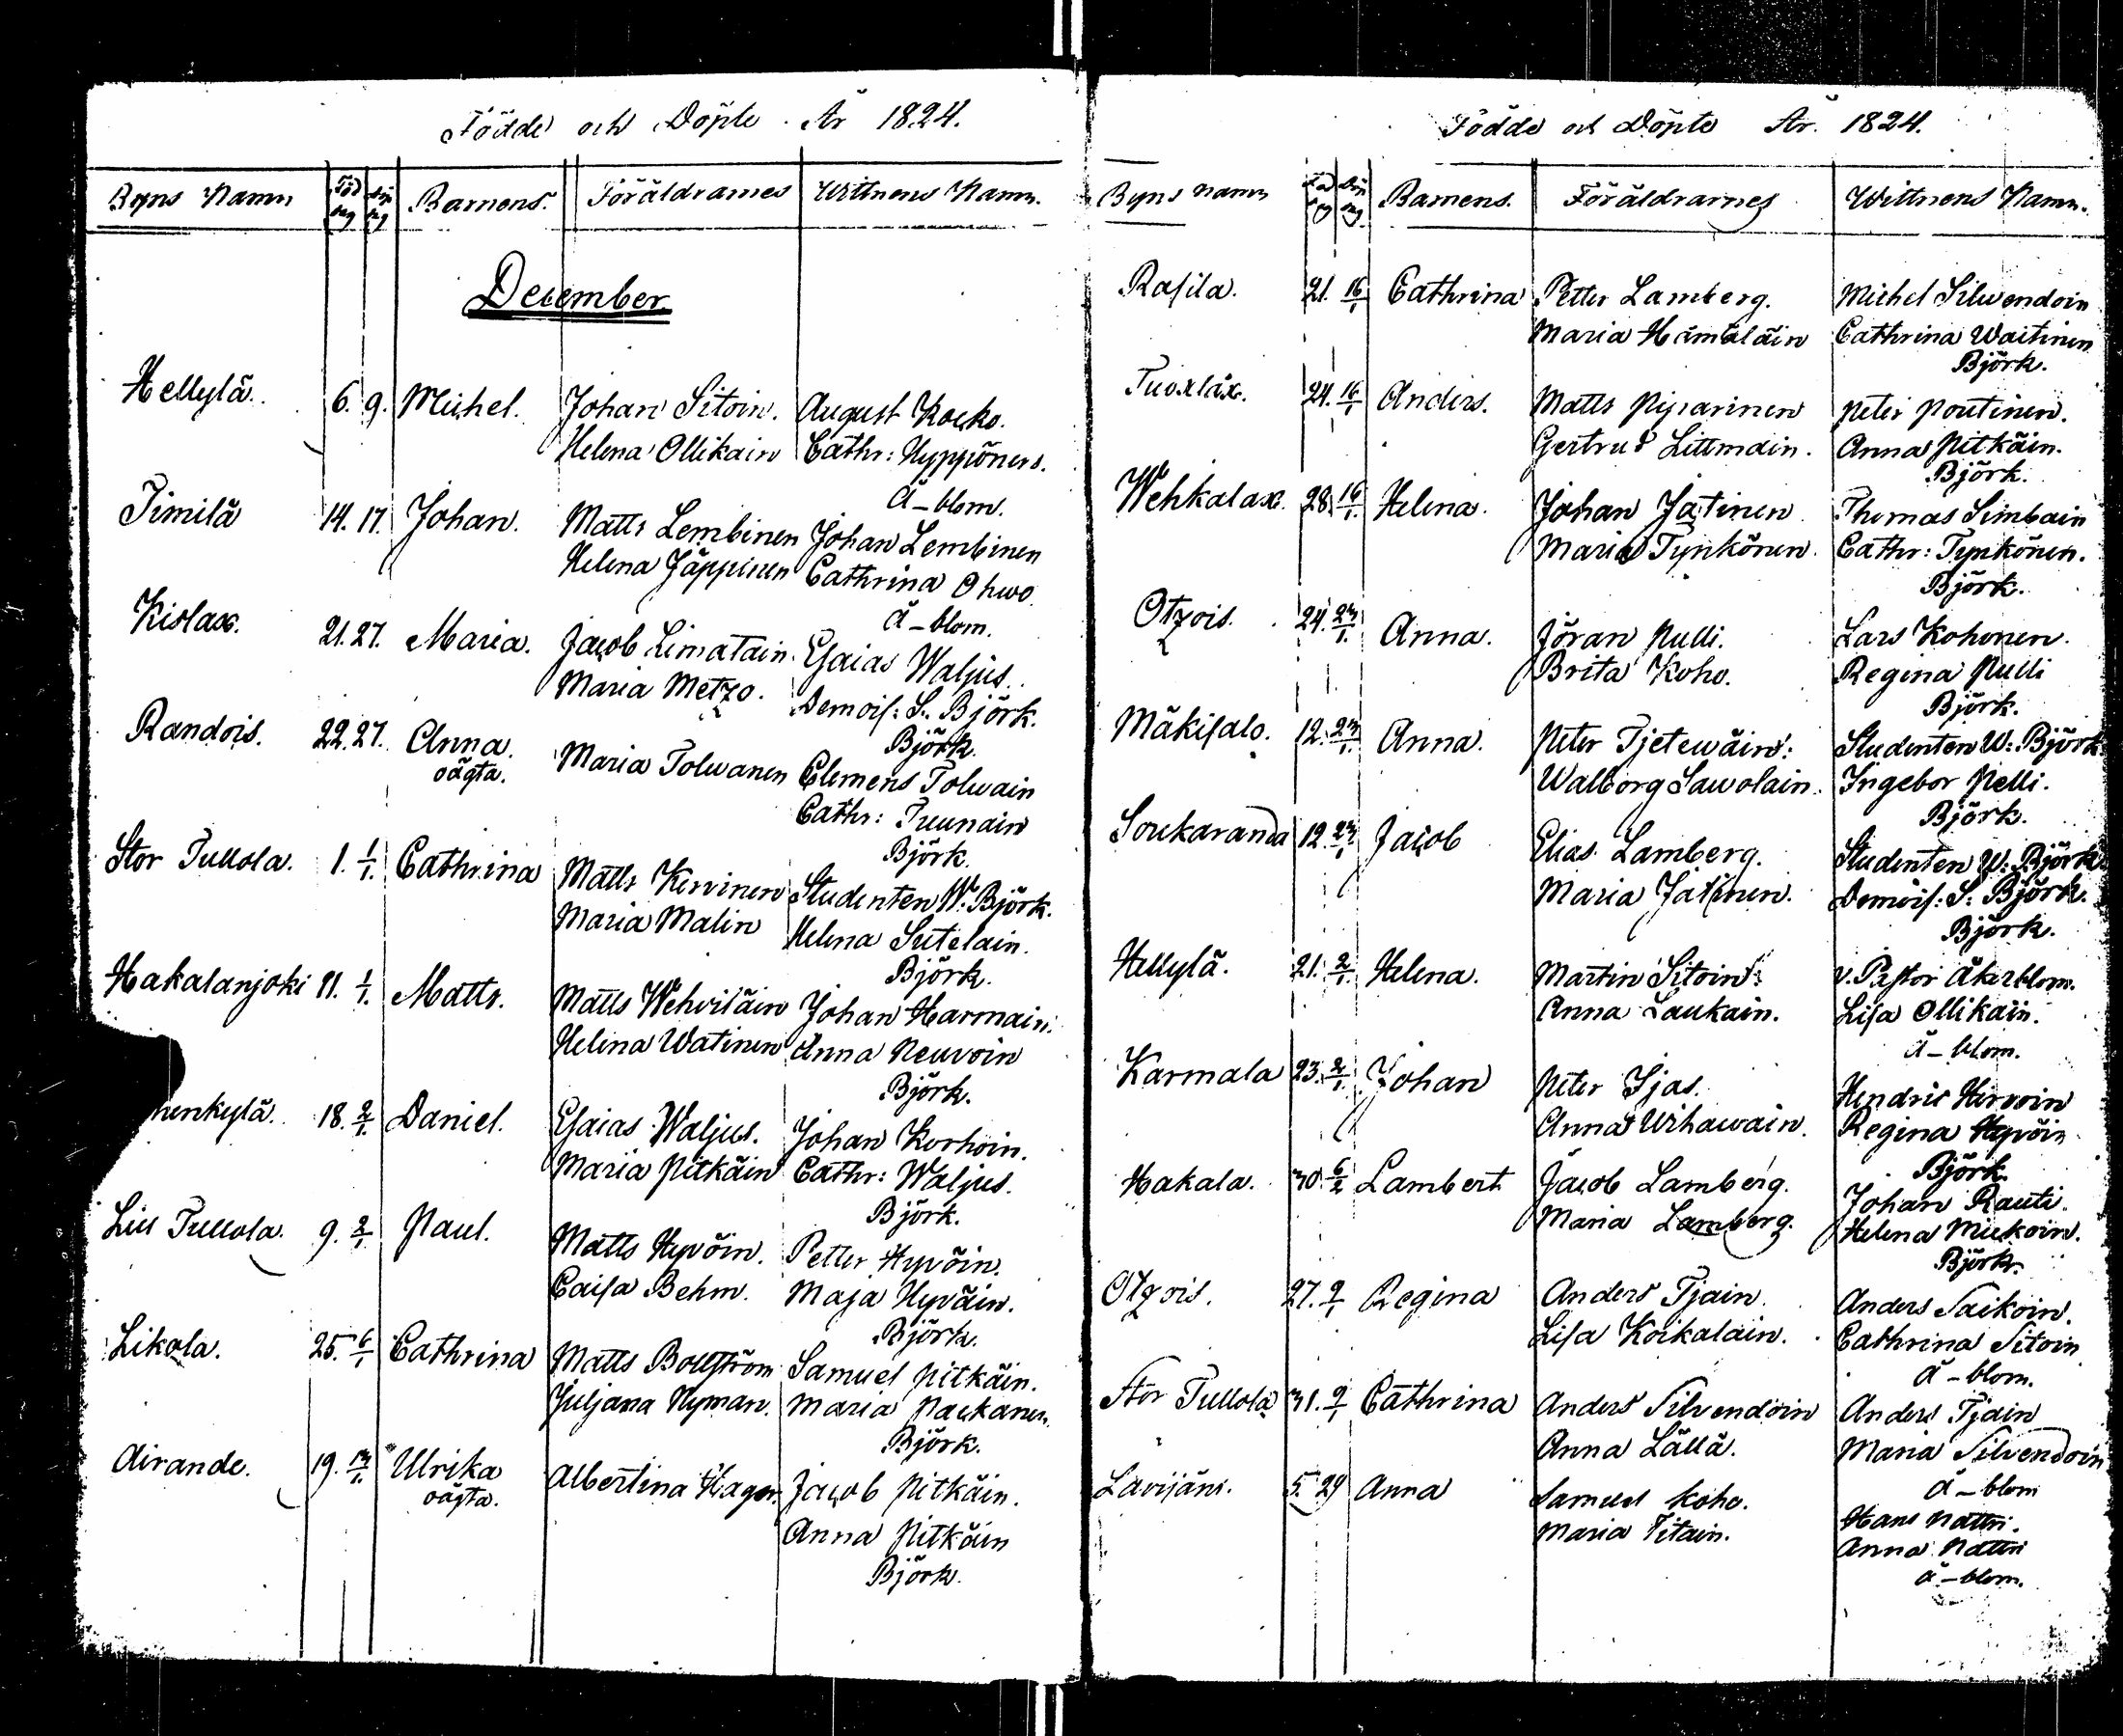 Födde och Döpte År 1824.
Byns Namn Föd ing Döp ing Barnens. Föräldrarnes Wittnens Namn.
December
Hellylä. 6. 9. Michel. Johan Sitoin. August Kocko.
Helena Ollikain Cathr: Hyppönens.
Å-blom.
Jimilä 14. 17. Johan. Matts Lembinen Johan Lembinen
Helena Jäppinen Cathrina Ohwo
Å-blom.
Kislax. 21. 27. Maria. Jacob Limatain. Esaias Waljus.
Maria Metzo. Demois: S. Björk.
Björk.
Randois. 22. 27. Anna. Maria Tolwanen Clemens Tolwain
oägta. Cathr: Tuunain
Björk.
Stor Tullola. 1. 1/1. Cathrina Matts Kervinen Studenten W. Björk.
Maria Malin Helena Sutelain.
Björk.
Hakalanjoki 11. 1/1. Matts. Matts Wehviläin Johan Harmain.
Helena Watinen Anna Neuvoin
Björk.
henkylä. 18. 2/1. Daniel. Esaias Waljus. Johan Korhoin.
Maria Pitkäin Cathr: Waljus.
Björk.
Lill Tullola. 9. 2/1. Paul. Matts Hyvöin. Petter Hyvöin.
Caisa Behm. Maja Hyväin.
Björk.
Likola. 25. 6/1 Cathrina Matts Bollström Samuel Pitkäin.
Juljana Nyman. Maria Packanen.
Björk.
Airande. 19. 13/1. Ulrika Albertina Hager. Jacob Pitkäin.
oägta. Anna Pitkäin
Björk.
Födde och Döpte År. 1824.
Byns namn Föd ing Döp ing Barnens. Föräldrarnes Wittnens Namn.
Rasila. 21. 16/1 Cathrina Petter Lamberg. Michel Silwendoin
Maria Hämäläin Cathrina Waitinen
Björk.
Tuoxlax. 24. 16/1 Anders. Matts Piparinen Peter Poutinen.
Gertrud Littmain. Anna Pitkäin.
Björk.
Wehkalax. 28. 16/1. Helena. Johan Jätinen Thomas Simbain
Maria Tynkönen. Cathr: Tynkönen.
Björk.
Otzois. 24. 23/1. Anna. Jöran Pulli. Lars Kohonen.
Brita Koho. Regina Pulli
Björk.
Mäkisalo. 12. 23/1. Anna. Peter Tjetewäin: Studenten W: Björk.
Walborg Sawolain. Ingebor Pelli.
Björk.
Soukaranda 12. 23/1 Jacob Elias Lamberg. Studenten W: Björk.
Maria Jätinen. Demois: S: Björk.
Björk.
Hellylä. 21. 2/1 Helena. Martin Sitoin: v. Pastor Åkerblom.
Anna Laukain. Lisa Ollikain.
Å-blom.
Karmala 23. 2/1. Johan Peter Ijas. Hendric Hirvoin
Anna Wihawain. Regina Hyvöin
Björk.
Hakala. 30. 6/2 Lambert Jacob Lamberg. Johan Rauti.
Maria Lamberg. Helena Mickoin.
Björk.
Otzois. 27. 9/1 Regina Anders Tjain Anders Saikoin.
Lisa Koikalain. Cathrina Sitoin
Å-blom.
Stor Tullola 31. 9/1 Cathrina Anders Silvendoin Anders Tjain
Anna Lällä. Maria Silvendoin
Å-blom
Lavijärv. 5. 29 Anna Samuel Koho. Hans Nattri.
Maria Titain. Anna Nattri
Å-blom.